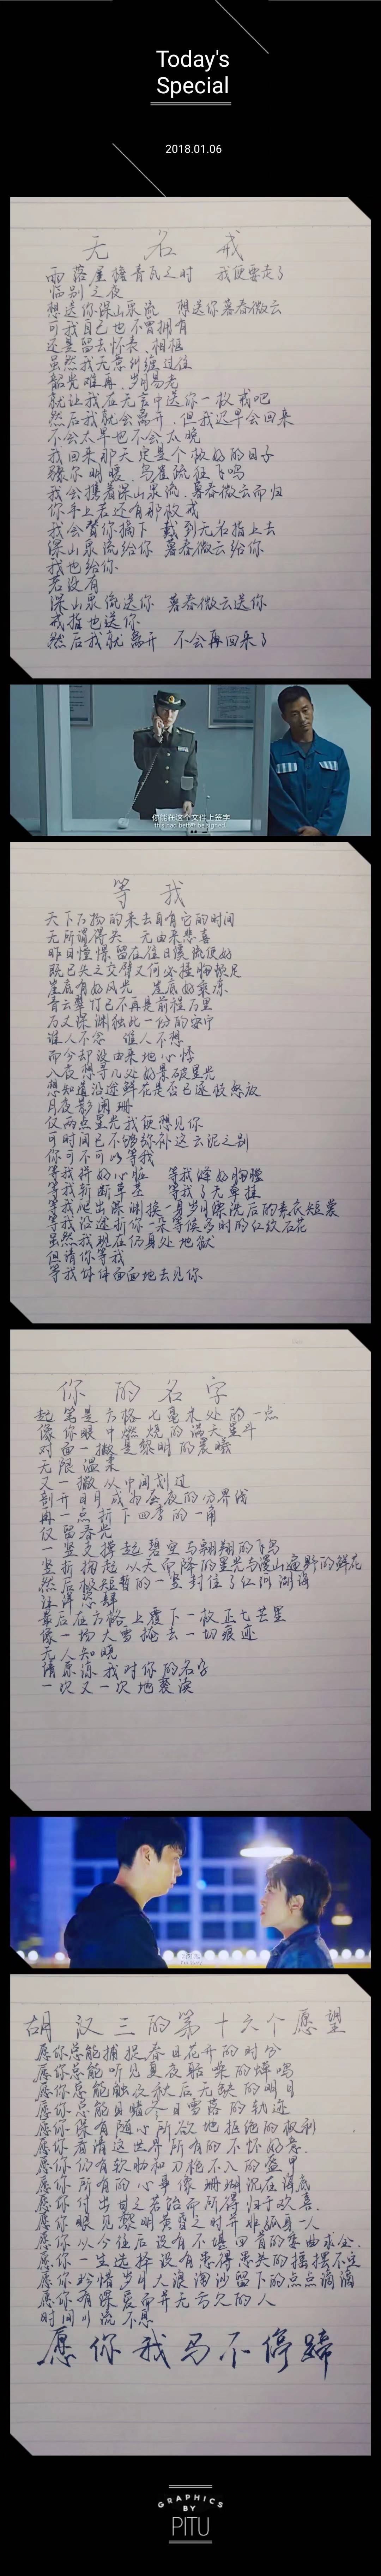 Today's
Special
2018.01.06
无名戒
雨落屋檐青瓦之时 我便要走了
临别之夜
想送你深山泉流 想送你薄春微云
可我自己也不曾拥有
还是留去怀表 相框
虽然我无意纠缠过往
韶光难再 岁月易老
就让我在无言中送你一枚戒吧
然后我就会离开 但我迟早会回来
不会太早也不会太晚
我回来那天定是个极好的日子
骤尔明暖 鸟雀疏狂飞鸣
我会携着深山泉流 薄春微云而归
你手上若还有那枚戒
我会替你摘下 戴到无名指上去
深山泉流给你 薄春微云给你
我也给你
若没有
深山泉流送你 薄春微云送你
戒指也送你
然后我就离开 不会再回来了
你能在这个文件上签字
等我
天下万物的来去自有它的时间
无所谓得失 无由来悲喜
昨日憧憬留在往日慢流便好
既已失之交臂又何必接踵驻足
崖底有好风光 崖底好乘凉
青云犁灯已不再是前程万里
万丈深渊独此一份的安宁
谁人不念 谁人不想
而今却没由来地心悸
入夜想寻几处好景破星光
想知道沿途鲜花是否已逐枝怒放
月夜影阑珊
仅两点星光我便想见你
可时间已不够弥补这云泥之别
你可不可以等我
等我拼好心脏 等我缝好胸膛
等我斩断牵牵 等我了无牵挂
等我爬出深渊换一身岁月漂洗后的素衣短裳
等我沿途折你一朵等候多时的红玫石花
虽然我现在仍身处地狱
但请你等我
等我体体面面地去见你
你的名字
起笔是方格七毫米处的一点
像你眼中燃烧的满天星斗
对面一撇是黎明的晨曦
无限温柔
又一撇从中间划过
剖开日月成为昼夜的分界线
再一点折下四季的一角
仅留春光
一竖支撑起碧空与翱翔的飞鸟
竖折掬起从天而降的星光与漫山遍野的鲜花
然后极短暂的一竖封住了江河湖海
汪洋恣肆
最后在方格上覆下一枚正七芒星
像一场大雪掩去一切痕迹
无人知晓
请原谅我对你的名字
一次又一次地亵渎
胡汉三的第十六个愿望
愿你总能捕捉春日花开的时分
愿你总能听见夏夜聒噪的蝉鸣
愿你总能触及秋后无缺的明月
愿你总能目睹冬日雪落的轨迹
愿你保有随心所欲地拒绝的权利
愿你看清这世界所有的不怀好意
愿你仍有软肋和刀枪不入的盔甲
愿你所有的心事像珊瑚沉在海底
愿你付出甘之若饴而所得归于欢喜
愿你眼见黎明黄昏之时并非孤身一人
愿你从今往后没有不堪回首的委曲求全
愿你一生选择没有患得患失的摇摆不定
愿你珍惜岁月大浪淘沙留下的点点滴滴
愿你有深爱而并无亏欠的人
时间川流不息
愿你我马不停蹄
GRAPHICS
BY
PITU